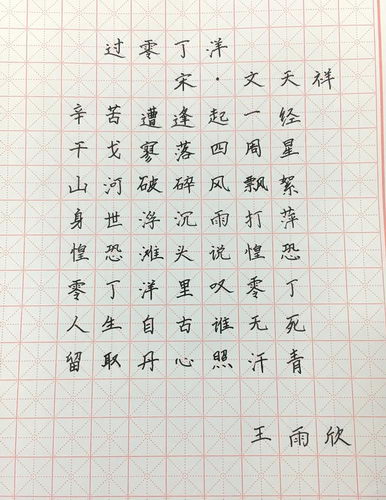 过零丁洋
宋·文天祥
辛苦遭逢起一经
干戈寥落四周星
山河破碎风飘絮
身世浮沉雨打萍
惶恐滩头说惶恐
零丁洋里叹零丁
人生自古谁无死
留取丹心照汗青
王雨欣